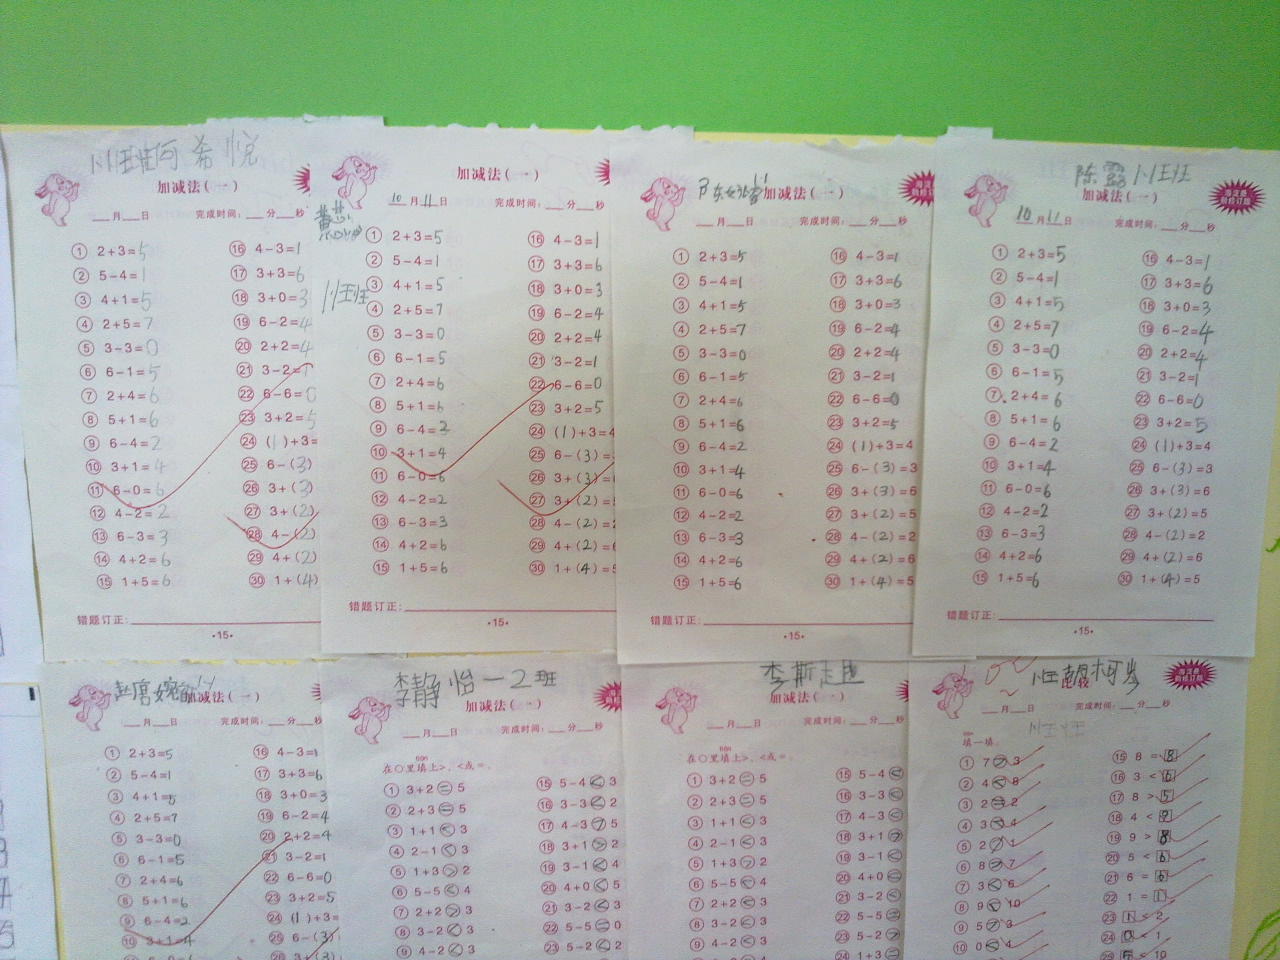 小班何希悦
加减法(一)
___月___日 完成时间:___分___秒
① 2+3=5 ⑯ 4-3=1
② 5-4=1 ⑰ 3+3=6
③ 4+1=5 ⑱ 3+0=3
④ 2+5=7 ⑲ 6-2=4
⑤ 3-3=0 ⑳ 2+2=4
⑥ 6-1=5 ㉑ 3-2=1
⑦ 2+4=6 ㉒ 6-6=0
⑧ 5+1=6 ㉓ 3+2=5
⑨ 6-4=2 ㉔ (1)+3=
⑩ 3+1=4 ㉕ 6-(3)
⑪ 6-0=6 ㉖ 3+(3)
⑫ 4-2=2 ㉗ 3+(2)
⑬ 6-3=3 ㉘ 4-(2)
⑭ 4+2=6 ㉙ 4+(2)
⑮ 1+5=6 ㉚ 1+(4)
错题订正:
·15·
加减法(一)
10月11日 完成时间:___分___秒
① 2+3=5 ⑯ 4-3=1
② 5-4=1 ⑰ 3+3=6
③ 4+1=5 ⑱ 3+0=3
④ 2+5=7 ⑲ 6-2=4
⑤ 3-3=0 ⑳ 2+2=4
⑥ 6-1=5 ㉑ 3-2=1
⑦ 2+4=6 ㉒ 6-6=0
⑧ 5+1=6 ㉓ 3+2=5
⑨ 6-4=2 ㉔ (1)+3=4
⑩ 3+1=4 ㉕ 6-(3)=
⑪ 6-0=6 ㉖ 3+(3)=
⑫ 4-2=2 ㉗ 3+(2)=
⑬ 6-3=3 ㉘ 4-(2)=
⑭ 4+2=6 ㉙ 4+(2)=
⑮ 1+5=6 ㉚ 1+(4)=5
错题订正:
·15·
加减法(一)
___月___日 完成时间:___分___秒
① 2+3=5 ⑯ 4-3=1
② 5-4=1 ⑰ 3+3=6
③ 4+1=5 ⑱ 3+0=3
④ 2+5=7 ⑲ 6-2=4
⑤ 3-3=0 ⑳ 2+2=4
⑥ 6-1=5 ㉑ 3-2=1
⑦ 2+4=6 ㉒ 6-6=0
⑧ 5+1=6 ㉓ 3+2=5
⑨ 6-4=2 ㉔ (1)+3=4
⑩ 3+1=4 ㉕ 6-(3)=3
⑪ 6-0=6 ㉖ 3+(3)=6
⑫ 4-2=2 ㉗ 3+(2)=5
⑬ 6-3=3 ㉘ 4-(2)=2
⑭ 4+2=6 ㉙ 4+(2)=6
⑮ 1+5=6 ㉚ 1+(4)=5
错题订正:
·15·
陈露
加减法(一)
10月11日 完成时间:___分___秒
① 2+3=5 ⑯ 4-3=1
② 5-4=1 ⑰ 3+3=6
③ 4+1=5 ⑱ 3+0=3
④ 2+5=7 ⑲ 6-2=4
⑤ 3-3=0 ⑳ 2+2=4
⑥ 6-1=5 ㉑ 3-2=1
⑦ 2+4=6 ㉒ 6-6=0
⑧ 5+1=6 ㉓ 3+2=5
⑨ 6-4=2 ㉔ (1)+3=4
⑩ 3+1=4 ㉕ 6-(3)=3
⑪ 6-0=6 ㉖ 3+(3)=6
⑫ 4-2=2 ㉗ 3+(2)=5
⑬ 6-3=3 ㉘ 4-(2)=2
⑭ 4+2=6 ㉙ 4+(2)=6
⑮ 1+5=6 ㉚ 1+(4)=5
错题订正:
·15·
加减法(一)
___月___日 完成时间:___分___秒
① 2+3=5 ⑯ 4-3=1
② 5-4=1 ⑰ 3+3=6
③ 4+1=5 ⑱ 3+0=3
④ 2+5=7 ⑲ 6-2=4
⑤ 3-3=0 ⑳ 2+2=4
⑥ 6-1=5 ㉑ 3-2=1
⑦ 2+4=6 ㉒ 6-6=0
⑧ 5+1=6 ㉓ 3+2=5
⑨ 6-4=2 ㉔ (1)+3=
⑩ 3+1=4 ㉕ 6-(3)
李静怡一2班
加减法(一)
___月___日 完成时间:___分___秒
在○里填上>、<或=。
① 3+2=5 ⑮ 5-4<3
② 2+3=5 ⑯ 3-3<2
③ 1+1<3 ⑰ 4-3>5
④ 2-1<3 ⑱ 3+1>2
⑤ 1+3>2 ⑲ 3-1<4
⑥ 5-5<4 ⑳ 4+0<5
⑦ 2+2>3 ㉑ 3-2<3
⑧ 3-2<3 ㉒ 5-5=0
⑨ 4-2<3 ㉓ 5-2<2
李斯
加减法(一)
___月___日 完成时间:___分___秒
在○里填上>、<或=。
① 3+2=5 ⑮ 5-4<
② 2+3=5 ⑯ 3-3<
③ 1+1<3 ⑰ 4-3<
④ 2-1<3 ⑱ 3+1>
⑤ 1+3>2 ⑲ 3-1<
⑥ 5-5<4 ⑳ 4+0
⑦ 2+2<3 ㉑ 3-2<
⑧ 3-2<3 ㉒ 5-5=
⑨ 4-2<3 ㉓ 5-2>
㉔ 1+3=
比较
___月___日 完成时间:___分___秒
填一填。
① 7>3 ⑮ 8=8
② 4<8 ⑯ 3<6
③ 2=2 ⑰ 8>5
④ 3<4 ⑱ 4<9
⑤ 2>1 ⑲ 9>8
⑥ 8>7 ⑳ 5<6
⑦ 3<6 ㉑ 6=6
⑧ 9<10 ㉒ 1=1
⑨ 5>3 ㉓ 1<2
⑩ 0<4 ㉔ 0<1